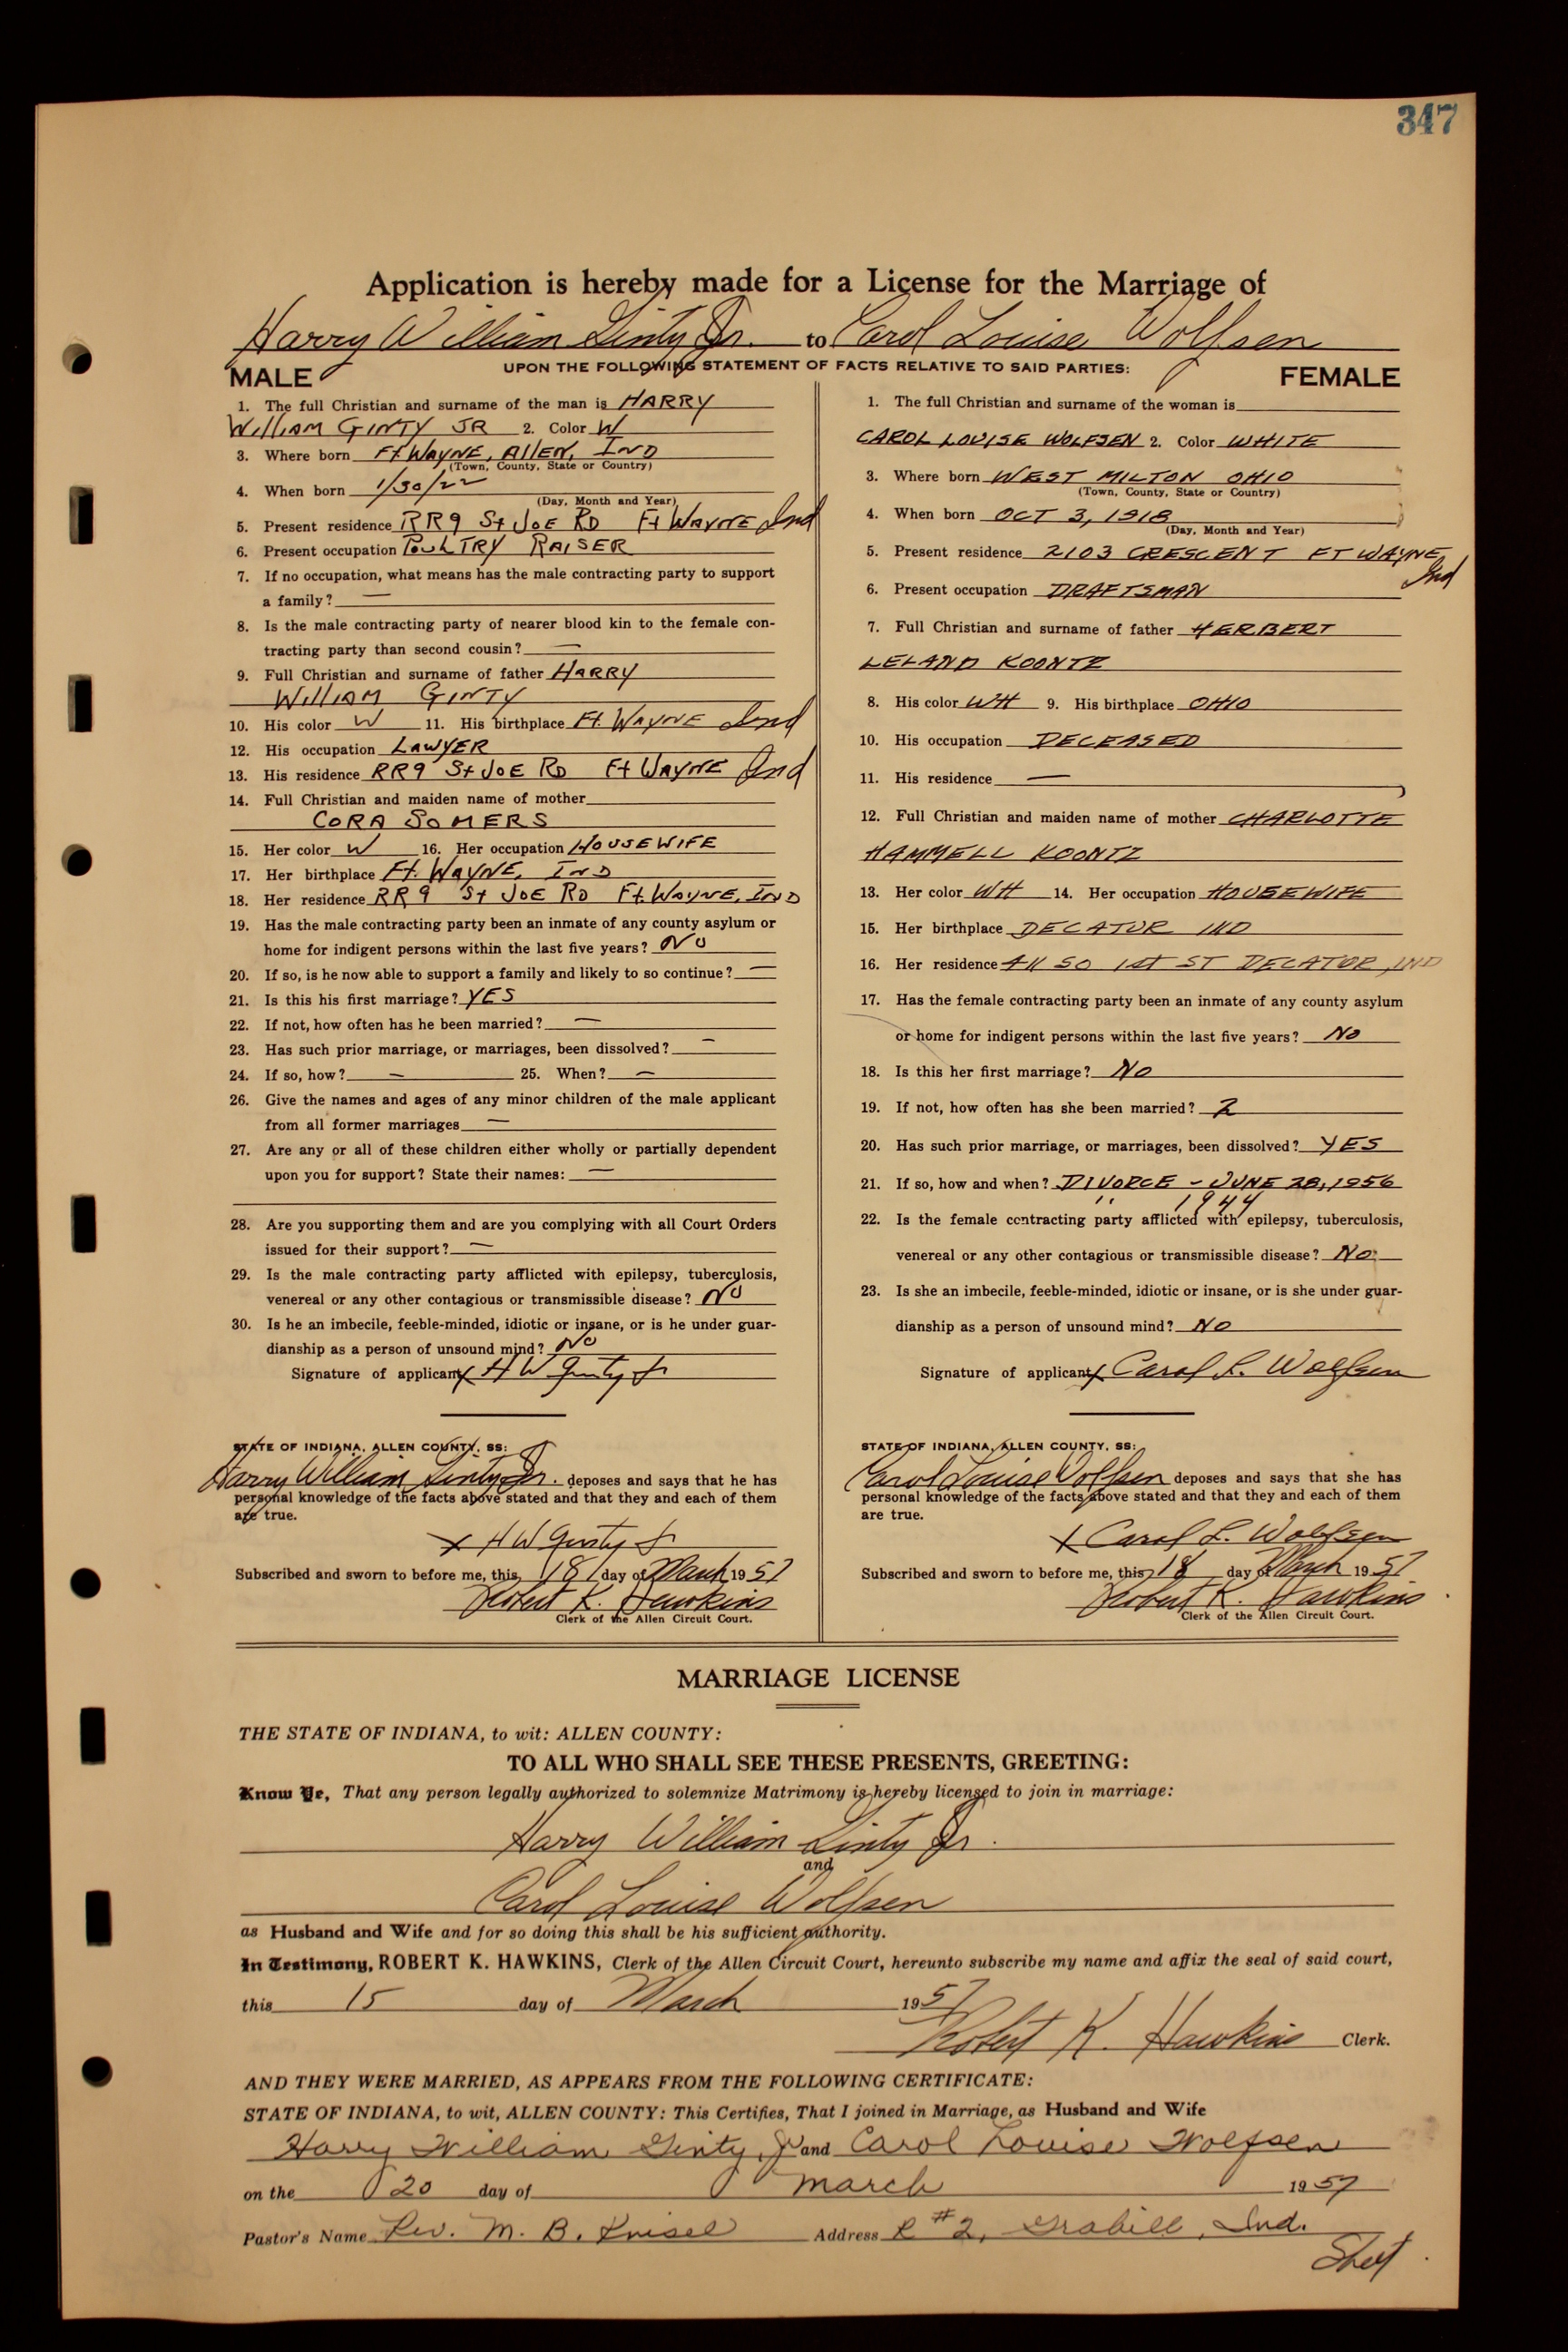 347
Application is hereby made for a License for the Marriage of
Harry William Ginty Jr. to Carol Louise Wolfsen
UPON THE FOLLOWING STATEMENT OF FACTS RELATIVE TO SAID PARTIES:
MALE
1. The full Christian and surname of the man is HARRY
WILLIAM GINTY JR 2. Color W
3. Where born Ft WAYNE, ALLEN, IND
(Town, County, State or Country)
4. When born 1/30/22
(Day, Month and Year)
5. Present residence RR9 St JOE RD Ft WAYNE Ind
6. Present occupation POULTRY RAISER
7. If no occupation, what means has the male contracting party to support
a family? —
8. Is the male contracting party of nearer blood kin to the female con-
tracting party than second cousin? —
9. Full Christian and surname of father HARRY
WILLIAM GINTY
10. His color W 11. His birthplace Ft. WAYNE Ind
12. His occupation LAWYER
13. His residence RR9 St JOE RD Ft WAYNE Ind
14. Full Christian and maiden name of mother
CORA SOMERS
15. Her color W 16. Her occupation HOUSEWIFE
17. Her birthplace Ft. WAYNE, IND
18. Her residence RR9 St JOE RD Ft. WAYNE, IND
19. Has the male contracting party been an inmate of any county asylum or
home for indigent persons within the last five years? NO
20. If so, is he now able to support a family and likely to so continue? —
21. Is this his first marriage? YES
22. If not, how often has he been married? —
23. Has such prior marriage, or marriages, been dissolved? —
24. If so, how? — 25. When? —
26. Give the names and ages of any minor children of the male applicant
from all former marriages —
27. Are any or all of these children either wholly or partially dependent
upon you for support? State their names: —
28. Are you supporting them and are you complying with all Court Orders
issued for their support? —
29. Is the male contracting party afflicted with epilepsy, tuberculosis,
venereal or any other contagious or transmissible disease? NO
30. Is he an imbecile, feeble-minded, idiotic or insane, or is he under guar-
dianship as a person of unsound mind? NO
Signature of applicant x H W Ginty Jr
STATE OF INDIANA, ALLEN COUNTY, SS:
Harry William Ginty Jr. deposes and says that he has
personal knowledge of the facts above stated and that they and each of them
are true.
x H W Ginty Jr
Subscribed and sworn to before me, this 18 day of March 1957
Robert K. Hawkins
Clerk of the Allen Circuit Court.
FEMALE
1. The full Christian and surname of the woman is
CAROL LOUISE WOLFSEN 2. Color WHITE
3. Where born WEST MILTON OHIO
(Town, County, State or Country)
4. When born OCT 3, 1918
(Day, Month and Year)
5. Present residence 2103 CRESCENT FT WAYNE
Ind
6. Present occupation DRAFTSMAN
7. Full Christian and surname of father HERBERT
LELAND KOONTZ
8. His color WH 9. His birthplace OHIO
10. His occupation DECEASED
11. His residence —
12. Full Christian and maiden name of mother CHARLOTTE
HAMMELL KOONTZ
13. Her color WH 14. Her occupation HOUSEWIFE
15. Her birthplace DECATUR IND
16. Her residence 411 SO 1ST ST DECATOR, IND
17. Has the female contracting party been an inmate of any county asylum
or home for indigent persons within the last five years? NO
18. Is this her first marriage? NO
19. If not, how often has she been married? 2
20. Has such prior marriage, or marriages, been dissolved? YES
21. If so, how and when? DIVORCE - JUNE 28, 1956
" 1944
22. Is the female contracting party afflicted with epilepsy, tuberculosis,
venereal or any other contagious or transmissible disease? NO
23. Is she an imbecile, feeble-minded, idiotic or insane, or is she under guar-
dianship as a person of unsound mind? NO
Signature of applicant x Carol L. Wolfsen
STATE OF INDIANA, ALLEN COUNTY, SS:
Carol Louise Wolfsen deposes and says that she has
personal knowledge of the facts above stated and that they and each of them
are true.
x Carol L. Wolfsen
Subscribed and sworn to before me, this 18 day of March 1957
Robert K. Hawkins
Clerk of the Allen Circuit Court.
MARRIAGE LICENSE
THE STATE OF INDIANA, to wit: ALLEN COUNTY:
TO ALL WHO SHALL SEE THESE PRESENTS, GREETING:
Know Ye, That any person legally authorized to solemnize Matrimony is hereby licensed to join in marriage:
Harry William Ginty Jr.
and
Carol Louise Wolfsen
as Husband and Wife and for so doing this shall be his sufficient authority.
In Testimony, ROBERT K. HAWKINS, Clerk of the Allen Circuit Court, hereunto subscribe my name and affix the seal of said court,
this 15 day of March 1957
Robert K. Hawkins Clerk.
AND THEY WERE MARRIED, AS APPEARS FROM THE FOLLOWING CERTIFICATE:
STATE OF INDIANA, to wit, ALLEN COUNTY: This Certifies, That I joined in Marriage, as Husband and Wife
Harry William Ginty, Jr and Carol Louise Wolfsen
on the 20 day of March 1957
Pastor's Name Rev. M. B. Knisel Address R #2, Grabill, Ind.